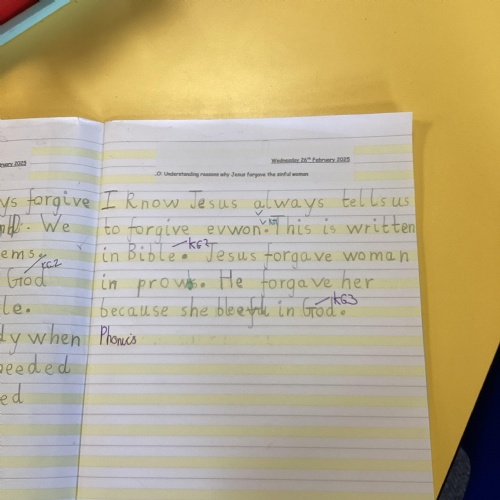 ruary 2025
ys forgive
We
ems.
God KG2
le.
dy when
needed
ed
Wednesday 26th February 2025
.O: Understanding reasons why Jesus forgave the sinful woman
I Know Jesus always tells us
to forgive evwon. This is written
in Bible. KG2 Jesus forgave woman
in prows. He forgave her
because she in God. KG3
Phonics